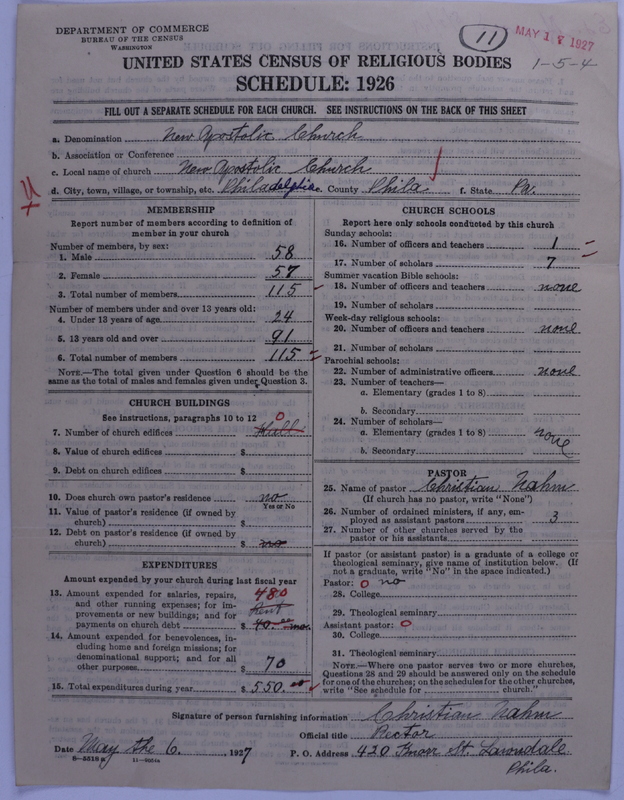 DEPARTMENT OF COMMERCE
BUREAU OF THE CENSUS
WASHINGTON
11
MAY 17 1927
1-5-4
UNITED STATES CENSUS OF RELIGIOUS BODIES
SCHEDULE: 1926
FILL OUT A SEPARATE SCHEDULE FOR EACH CHURCH. SEE INSTRUCTIONS ON THE BACK OF THIS SHEET
a. Denomination New Apostolic Church
b. Association or Conference
c. Local name of church New Apostolic Church
d. City, town, village, or township, etc. Philadelphia e. County Phila f. State Pa.
MEMBERSHIP
Report number of members according to definition of
member in your church
Number of members, by sex:
1. Male 58
2. Female 57
3. Total number of members 115
Number of members under and over 13 years old:
4. Under 13 years of age 24
5. 13 years old and over 91
6. Total number of members 115
NOTE.—The total given under Question 6 should be the
same as the total of males and females given under Question 3.
CHURCH BUILDINGS
See instructions, paragraphs 10 to 12 0
7. Number of church edifices Hall
8. Value of church edifices $
9. Debt on church edifices $
10. Does church own pastor's residence no
Yes or No
11. Value of pastor's residence (if owned by
church) $
12. Debt on pastor's residence (if owned by
church) $ no
EXPENDITURES
Amount expended by your church during last fiscal year
13. Amount expended for salaries, repairs, 480
and other running expenses; for im-
provements or new buildings; and for Rent
payments on church debt $ 40.00 mo.
14. Amount expended for benevolences, in-
cluding home and foreign missions; for
denominational support; and for all
other purposes $ 70
15. Total expenditures during year $ 550.00
CHURCH SCHOOLS
Report here only schools conducted by this church
Sunday schools:
16. Number of officers and teachers 1
17. Number of scholars 7
Summer vacation Bible schools:
18. Number of officers and teachers none
19. Number of scholars
Week-day religious schools:
20. Number of officers and teachers none
21. Number of scholars
Parochial schools:
22. Number of administrative officers none
23. Number of teachers—
a. Elementary (grades 1 to 8)
b. Secondary
24. Number of scholars—
a. Elementary (grades 1 to 8) none
b. Secondary
PASTOR
25. Name of pastor Christian Nahm
(If church has no pastor, write "None")
26. Number of ordained ministers, if any, em-
ployed as assistant pastors 3
27. Number of other churches served by the
pastor or his assistants
If pastor (or assistant pastor) is a graduate of a college or
theological seminary, give name of institution below. (If
not a graduate, write "No" in the space indicated.)
Pastor: 0 no
28. College
29. Theological seminary
Assistant pastor: 0
30. College
31. Theological seminary
NOTE.—Where one pastor serves two or more churches,
Questions 28 and 29 should be answered only on the schedule
for one of the churches; on the schedules for the other churches,
write "See schedule for church."
Signature of person furnishing information Christian Nahm
Official title Rector
Date May the 6. 1927 P. O. Address 420 Knorr St. Lawndale
Phila.